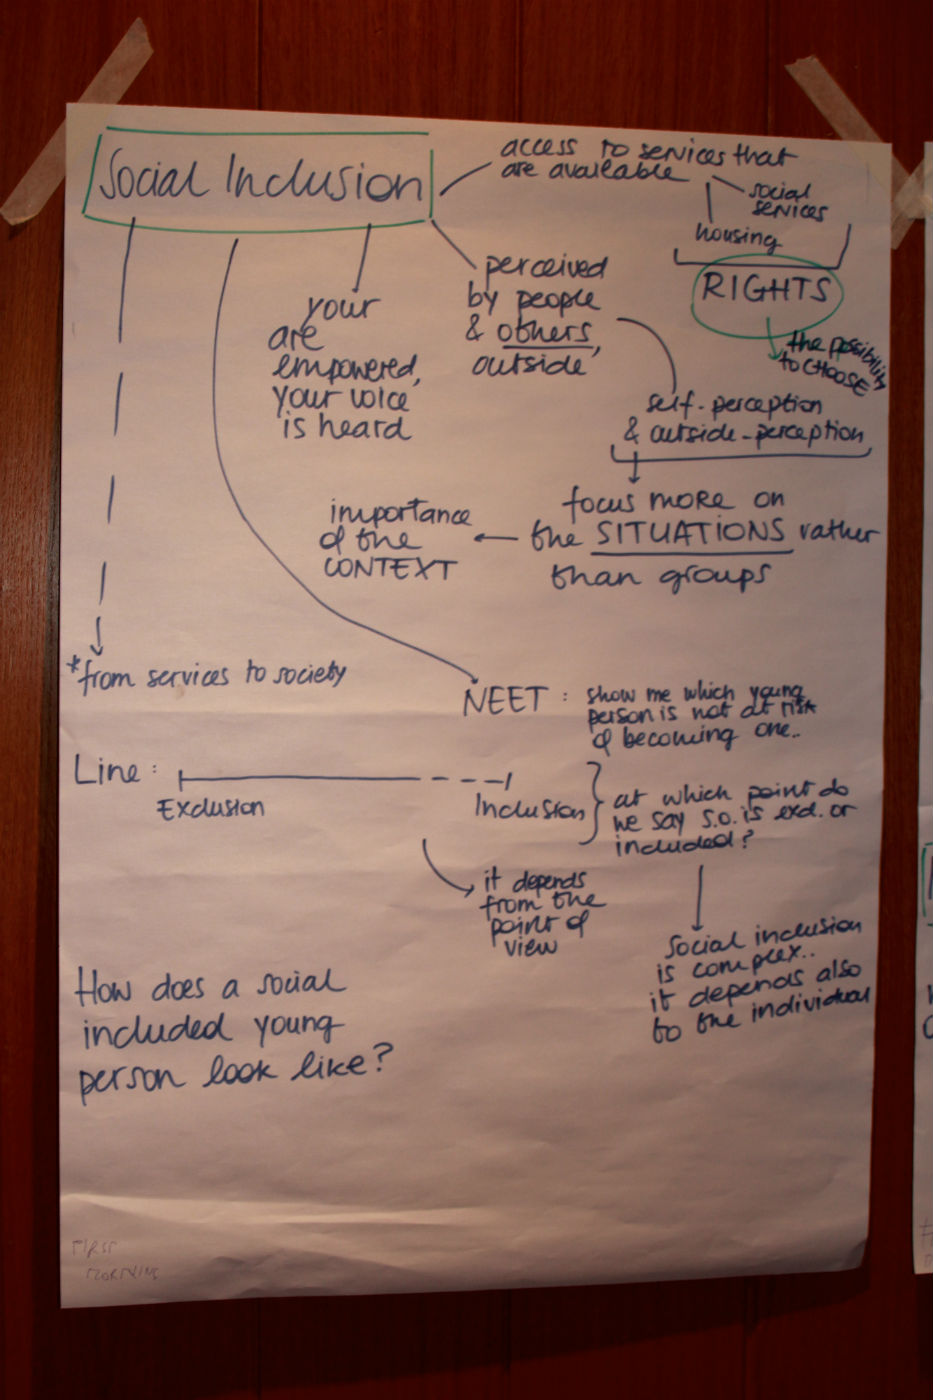 Social Inclusion
access to services that
are available
social
services
housing
RIGHTS
the possibility
to CHOOSE
perceived
by people
& others,
outside,
your
are
empowered,
your voice
is heard
self-perception
& outside-perception
focus more on
the SITUATIONS rather
than groups
importance
of the
CONTEXT
*from services to society
NEET : show me which young
person is not at risk
of becoming one..
Line :
Exclusion
Inclusion
at which point do
we say s.o. is excl. or
included?
it depends
from the
point of
view
social inclusion
is complex..
it depends also
to the individual
How does a social
included young
person look like?
FIRST
MORNING